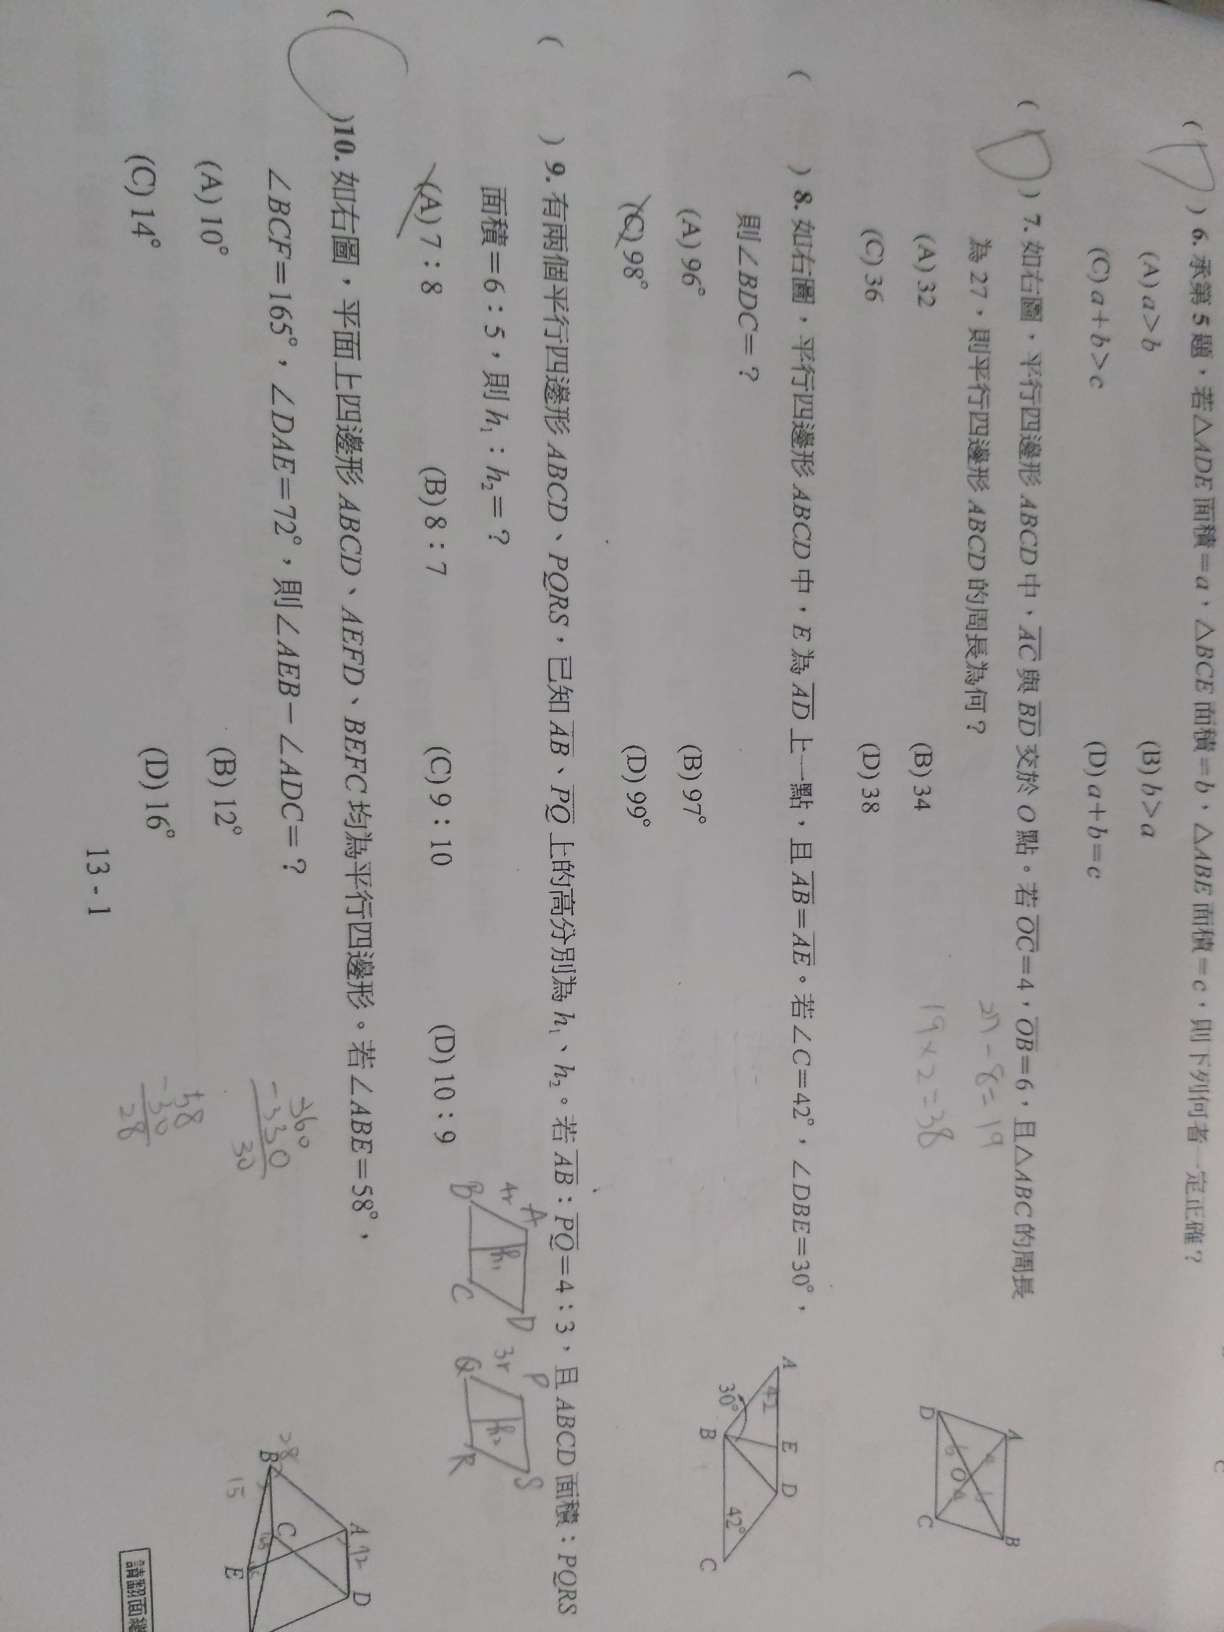 ( D ) 6. 承第 5 題，若△ADE 面積＝a、△BCE 面積＝b，△ABE 面積＝c，則下列何者一定正確？
(A) a＞b (B) b＞a
(C) a＋b＞c (D) a＋b＝c
( D ) 7. 如右圖，平行四邊形 ABCD 中，AC 與 BD 交於 O 點。若 OC＝4，OB＝6，且△ABC 的周長
為 27，則平行四邊形 ABCD 的周長為何？
27－8＝19
(A) 32 (B) 34
19×2＝38
(C) 36 (D) 38
A
B
C
D
O
6
( ) 8. 如右圖，平行四邊形 ABCD 中，E 為 AD 上一點，且 AB＝AE。若∠C＝42°，∠DBE＝30°，
則∠BDC＝？
(A) 96° (B) 97°
(C) 98° (D) 99°
A E D
42
30°
B
42°
C
( ) 9. 有兩個平行四邊形 ABCD、PQRS，已知 AB、PQ 上的高分別為 h₁、h₂。若 AB：PQ＝4：3，且 ABCD 面積：PQRS
面積＝6：5，則 h₁：h₂＝？
(A) 7：8 (B) 8：7 (C) 9：10 (D) 10：9
A D
4r h₁
B C
P S
3r h₂
Q R
( )10. 如右圖，平面上四邊形 ABCD、AEFD、BEFC 均為平行四邊形。若∠ABE＝58°，
∠BCF＝165°，∠DAE＝72°，則∠AEB－∠ADC＝？
(A) 10° (B) 12°
(C) 14° (D) 16°
360
－330
30
58
－30
28
A 72 D
28
B
C
165
15
E
13 - 1
請翻面繼